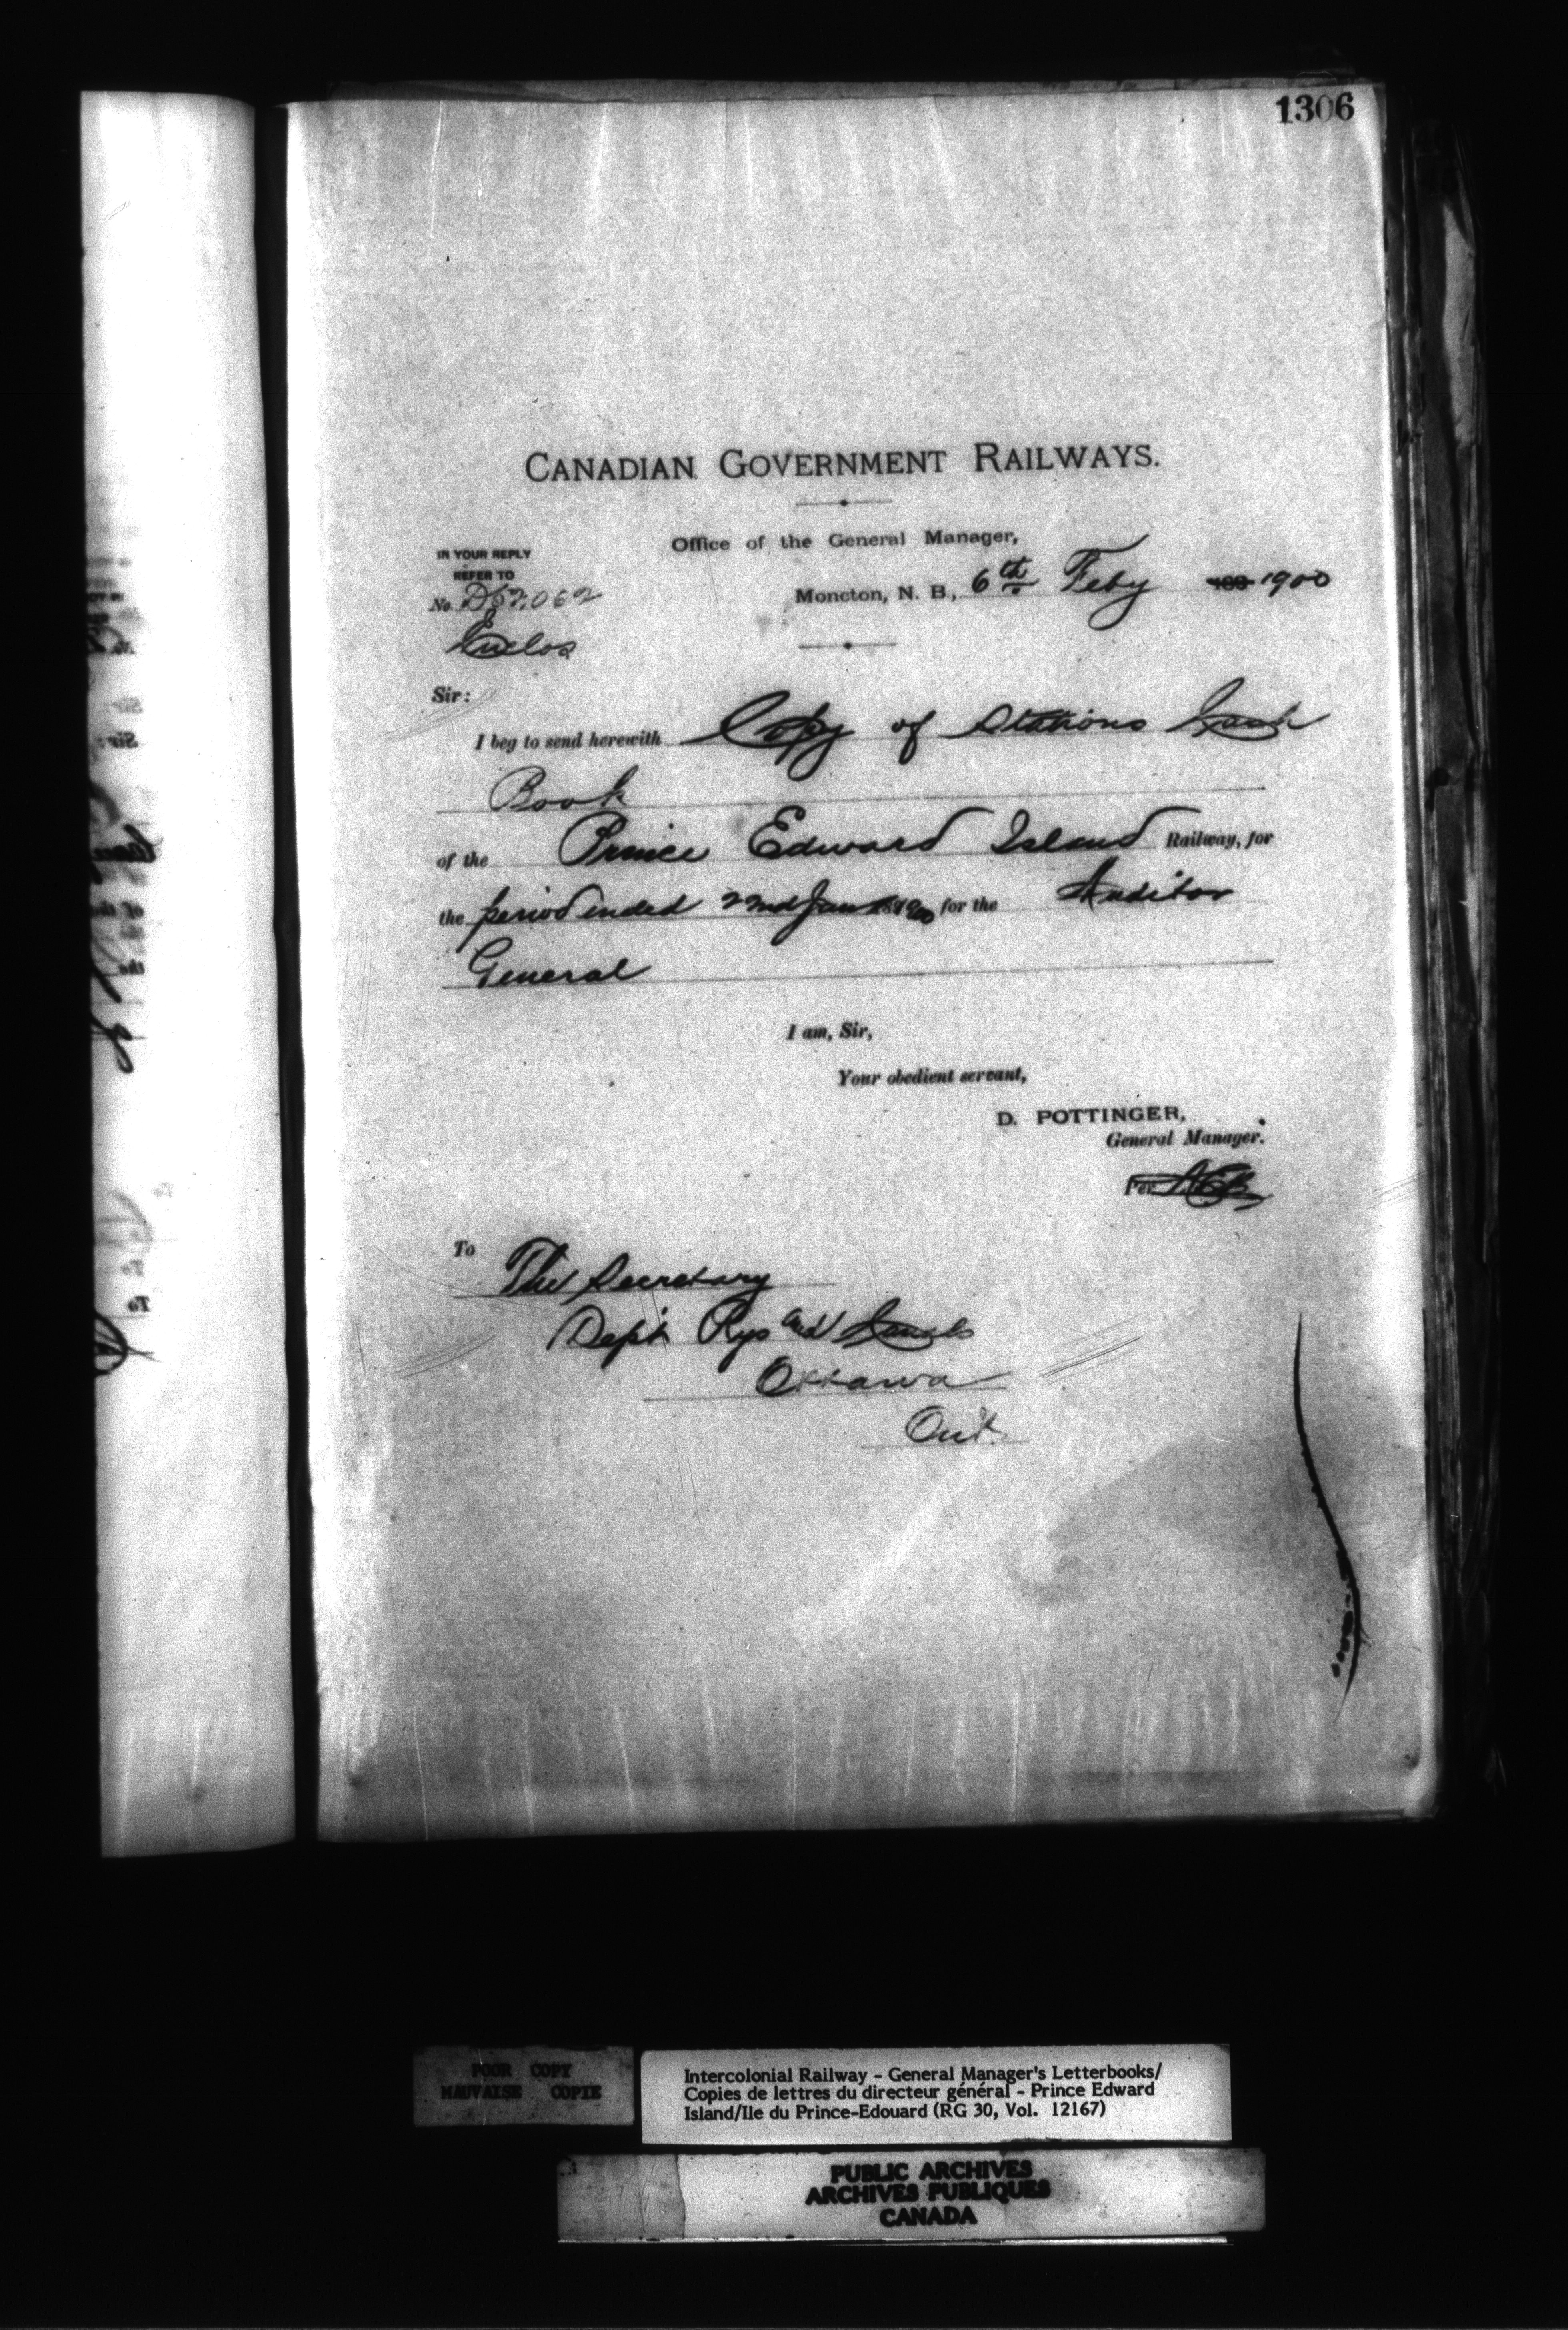 1306
CANADIAN GOVERNMENT RAILWAYS.
Office of the General Manager,
IN YOUR REPLY
REFER TO
No. D52,062
Enclos
Moncton, N. B., 6th Feby 189 1900
Sir:
I beg to send herewith Copy of Stations Cash
Book
of the Prince Edward Island Railway, for
the period ended 22nd Jan 1900 for the Auditor
General
I am, Sir,
Your obedient servant,
D. POTTINGER,
General Manager.
Per
To The Secretary
Dept Rys and Canals
Ottawa
Ont.
POOR COPY
MAUVAISE COPIE
Intercolonial Railway - General Manager's Letterbooks/
Copies de lettres du directeur général - Prince Edward
Island/Ile du Prince-Edouard (RG 30, Vol. 12167)
PUBLIC ARCHIVES
ARCHIVES PUBLIQUES
CANADA